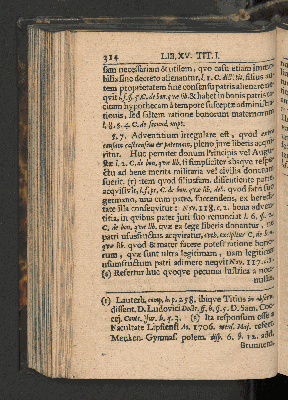 314 LIB. XV. TIT. I.
sam necessariam & utilem, quo casu etiam immo-
bilia sine decreto alienantur, l. 1. C. dict. tit. filius au-
tem proprietatem sine consensu patris alienare ne-
quit l. f. §. 5. C. de bon. quæ lib. & habet in bonis patris ta-
citam hypothecam à tempore susceptæ administra-
tionis, sed saltem ratione bonorum maternorum
l. 8. §. 4. C. de secund. nupt.
§. 7. Adventitium irregulare est, quod extra
castrense & paternum, pleno jure liberis acqui-
ritur. Huc pertinet donum Principis vel Augu-
stæ l. 7. C. de bon. quæ lib. si simpliciter absque respe-
ctu ad bene merita militaria vel civilia donatum
fuerit. (r) item quod filiusfam. dissentiente patre
acquisivit, l. f. pr. C. de bon. quæ lib. del. quod fratri suo
germano, una cum patre, succedens, ex heredi-
tate illa consequitur: Nov. 118. c. 2. bona adven-
titia, in quibus pater juri suo renunciat l. 6. §. 2.
C. de bon. quæ lib. quæ ea lege liberis donantur, ne
patri ususfructus acquiratur, C. de bon.
quæ lib. quod & mater facere potest ratione bono-
rum, quæ sunt ultra legitimam, nam legitimæ
usumfructum patri adimere nequit Nov. 117. c. 1.
(s) Refertur huc quoque pecunia lustrica a non-
nullis.
(r) Lauterb. comp. h. p. 258. ibique Titius in observ.
dissent. D. Ludovici Doctr. ff. h. §. 5. D. Sam. Coc-
ceji. Contr. Jur. h. q. 3. (s) Ita responsum esse a
Facultate Lipsiensi An. 1706. mens. Maj. refert
Mencken. Gymnas. polem. disp. 6. §. 12. add.
Brunnem.